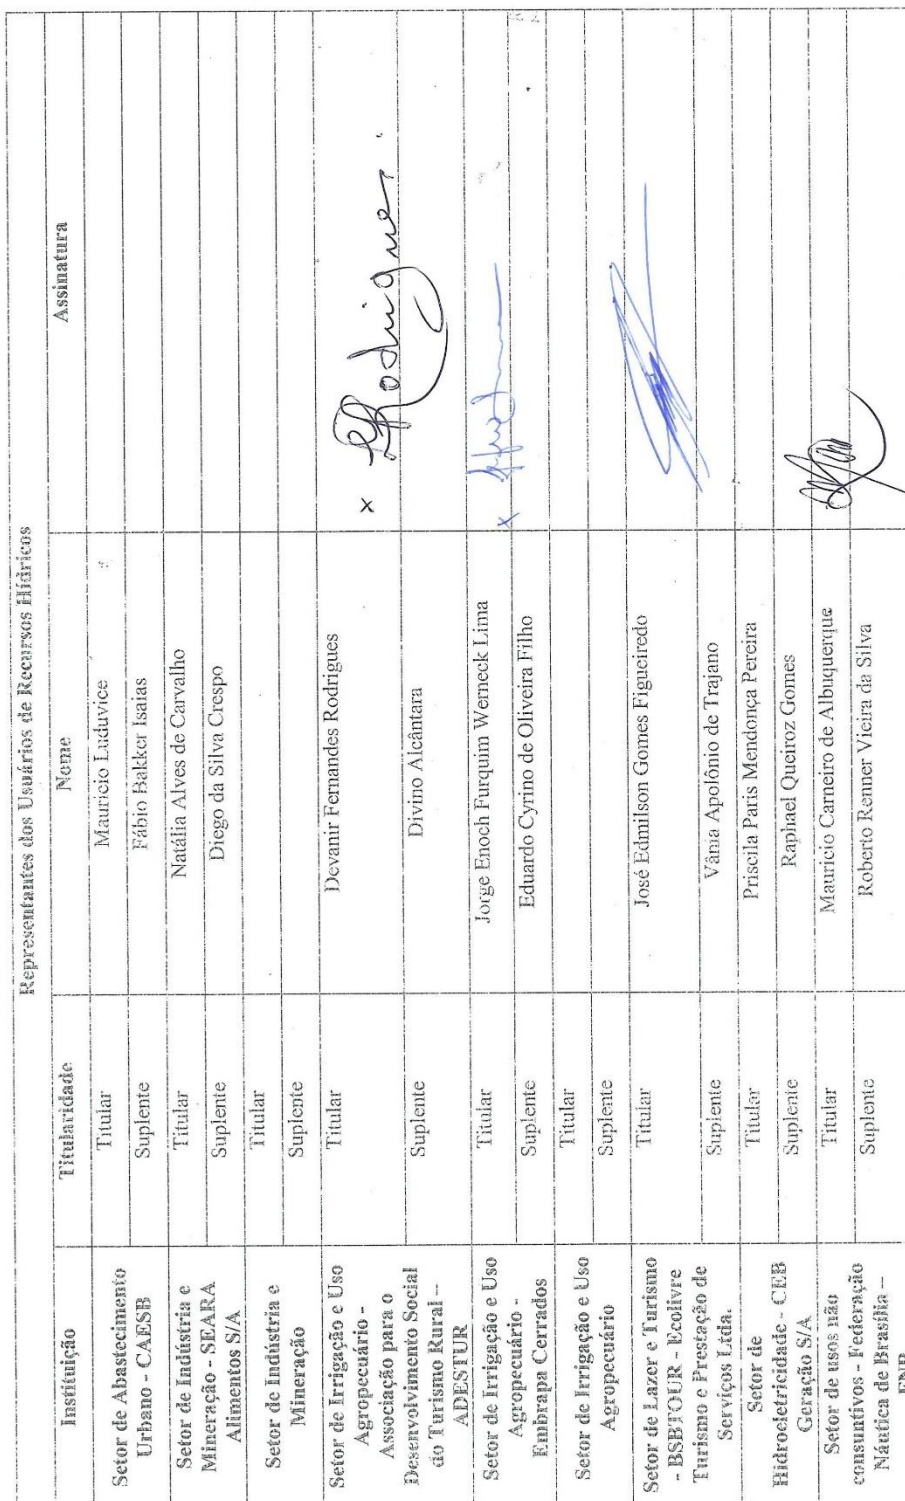 Representantes dos Usuários de Recursos Hídricos
Instituição Titularidade Nome Assinatura
Setor de Abastecimento
Urbano - CAESB
Titular Mauricio Luduvice
Suplente Fábio Bakker Isaias
Setor de Indústria e
Mineração - SEARA
Alimentos S/A
Titular Natália Alves de Carvalho
Suplente Diego da Silva Crespo
Setor de Indústria e
Mineração
Titular
Suplente
Setor de Irrigação e Uso
Agropecuário -
Associação para o
Desenvolvimento Social
do Turismo Rural –
ADESTUR
Titular Devanir Fernandes Rodrigues x Rodrigues
Suplente Divino Alcântara
Setor de Irrigação e Uso
Agropecuário -
Embrapa Cerrados
Titular Jorge Enoch Furquim Werneck Lima x
Suplente Eduardo Cyrino de Oliveira Filho
Setor de Irrigação e Uso
Agropecuário
Titular
Suplente
Setor de Lazer e Turismo
- BSBTOUR - Ecolivre
Turismo e Prestação de
Serviços Ltda.
Titular José Edmilson Gomes Figueiredo
Suplente Vânia Apolônio de Trajano
Setor de
Hidroeletricidade - CEB
Geração S/A
Titular Priscila Paris Mendonça Pereira
Suplente Raphael Queiroz Gomes
Setor de usos não
consuntivos - Federação
Náutica de Brasília –
FNB
Titular Mauricio Carneiro de Albuquerque
Suplente Roberto Renner Vieira da Silva